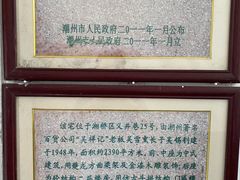 潮州市人民政府二〇一一年一月公布
潮州市人民政府二〇一一年一月立
该宅位于湘桥区义井巷25号,由潮州著名
百货公司"吴祥记"老板吴雪熏长子吴锡利建
于1948年,面积约2390平方米,前、中座为中式
建筑,用楚龙方曲梁架及金漆木雕装饰,后座